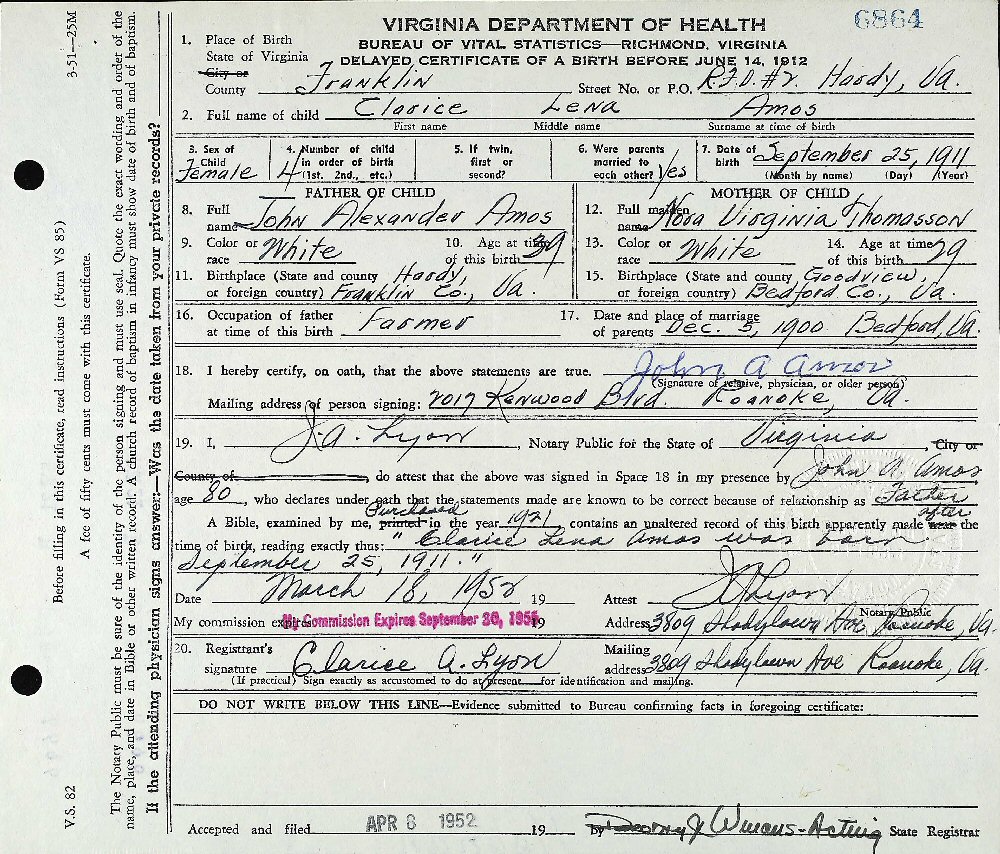 6864
VIRGINIA DEPARTMENT OF HEALTH
BUREAU OF VITAL STATISTICS—RICHMOND, VIRGINIA
DELAYED CERTIFICATE OF A BIRTH BEFORE JUNE 14, 1912
1. Place of Birth
State of Virginia
City or
County Franklin Street No. or P.O. R.F.D. #2 Hardy, Va.
2. Full name of child Clarice Lena Amos
First name Middle name Surname at time of birth
3. Sex of Child Female
4. Number of child in order of birth (1st. 2nd., etc.) 4
5. If twin, first or second?
6. Were parents married to each other? Yes
7. Date of birth September 25, 1911
(Month by name) (Day) (Year)
FATHER OF CHILD MOTHER OF CHILD
8. Full name John Alexander Amos 12. Full maiden name Nora Virginia Thomasson
9. Color or race White 10. Age at time of this birth 39 13. Color or race White 14. Age at time of this birth 29
11. Birthplace (State and county or foreign country) Hardy, Franklin Co., Va. 15. Birthplace (State and county or foreign country) Goodview, Bedford Co., Va.
16. Occupation of father at time of this birth Farmer 17. Date and place of marriage of parents Dec. 5, 1900 Bedford, Va.
18. I hereby certify, on oath, that the above statements are true. John A Amos
(Signature of relative, physician, or older person)
Mailing address of person signing: 2017 Kenwood Blvd. Roanoke, Va.
19. I, J.A. Lyon, Notary Public for the State of Virginia City or
County of , do attest that the above was signed in Space 18 in my presence by John A. Amos
age 80, who declares under oath that the statements made are known to be correct because of relationship as Father
Purchased after
A Bible, examined by me, printed in the year 1921, contains an unaltered record of this birth apparently made near the
time of birth, reading exactly thus: "Clarice Lena Amos was born
September 25, 1911."
Date March 18, 1952 19 Attest JA Lyon
Notary Public
My commission expires My Commission Expires September 20, 195 19 Address 3809 Shadylawn Ave Roanoke, Va.
20. Registrant's signature Clarice A. Lyon Mailing address 3809 Shadylawn Ave Roanoke, Va.
(If practical) Sign exactly as accustomed to do at present for identification and mailing.
DO NOT WRITE BELOW THIS LINE—Evidence submitted to Bureau confirming facts in foregoing certificate:
Accepted and filed APR 8 1952 19 By -Acting State Registrar
3-51—25M
V.S. 82
Before filling in this certificate, read instructions (Form VS 85)
A fee of fifty cents must come with this certificate.
The Notary Public must be sure of the identity of the person signing and must use seal. Quote the exact wording and order of the
name, place, and date in Bible or other written record. A church record of baptism in infancy must show date of birth and of baptism.
If the attending physician signs answer:—Was the date taken from your private records?